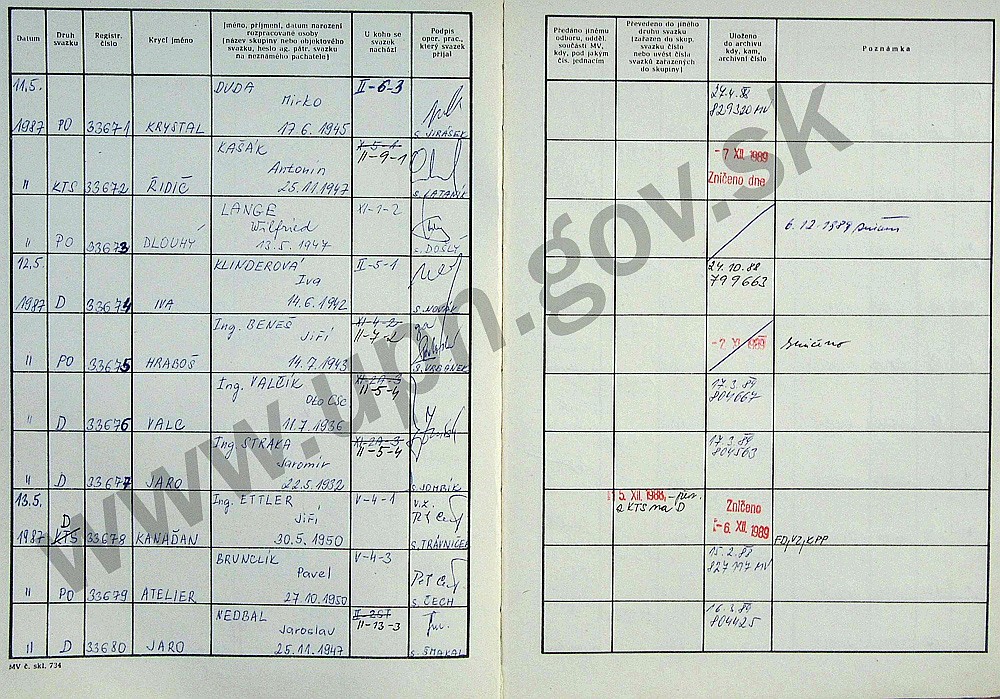 Datum
Druh svazku
Registr. číslo
Krycí jméno
Jméno, příjmení, datum narození
rozpracované osoby
(název skupiny nebo objektového
svazku, heslo ag. pátr. svazku
na neznámého pachatele)
U koho se
svazek
nachází
Podpis
oper. prac.,
který svazek
přijal
Předáno jinému
odboru, odděl.
součásti MV,
kdy, pod jakým
čís. jednacím
Převedeno do jiného
druhu svazku
(zařazen do skup.
svazku číslo
nebo uvést číslo
svazků zařazených
do skupiny)
Uloženo
do archivu
kdy, kam,
archivní číslo
Poznámka
11.5. DUDA II-6-3 27.4.
Mirko 829320 MV
1987 PO 33671 KRYSTAL 17.6.1945 s. JIRÁSEK
KAŠÁK X-5-1 - 7 XII. 1989
Antonín II-9-1
" KTS 33672 ŘIDIČ 25.11.1947 s. LATANÍK Zničeno dne
LANGE XI-1-2
Wilfried 6.12.1989
" PO 33673 DLOUHÝ 13.5.1947 s. DOŠLÝ
12.5. KLINDEROVÁ II-5-1 24.10.88
Iva 799663
1987 D 33674 IVA 14.6.1942 s. NOVÁK
Ing. BENEŠ XI-4-2
Jiří II-7-2 - 7 XI. 1989 zničeno
" PO 33675 HRABOŠ 14.7.1943 s. VRBÁNEK
Ing. VALČÍK XI-2A-3 17.3.89
Oto CSc II-5-4 804667
" D 33676 VALC 11.7.1936
Ing. STRAKA XI-2A-3 17.3.89
Jaromír II-5-4 804563
" D 33677 JARO 22.5.1932 s. JOMBÍK
13.5. Ing. ETTLER V-4-1 v.z. 15. XII. 1988, - Zničeno
D Jiří z KTS na D - 6. XII. 1989
1987 KTS 33678 KAŇAĎAN 30.5.1950 s. TRÁVNÍČEK FD,VZ,KPP
BRUNCLÍK V-4-3 15.2.88
Pavel 827197 MV
" PO 33679 ATELIER 27.10.1950 s. ČECH
NEDBAL 16.3.89
Jaroslav II-13-3 804425
" D 33680 JARO 25.11.1947 s. SMAKAL
MV č. skl. 734
www.upn.gov.sk